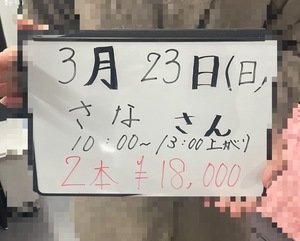 3月23日(日)
さな さん
10:00～13:00上がり
2本 ¥18,000